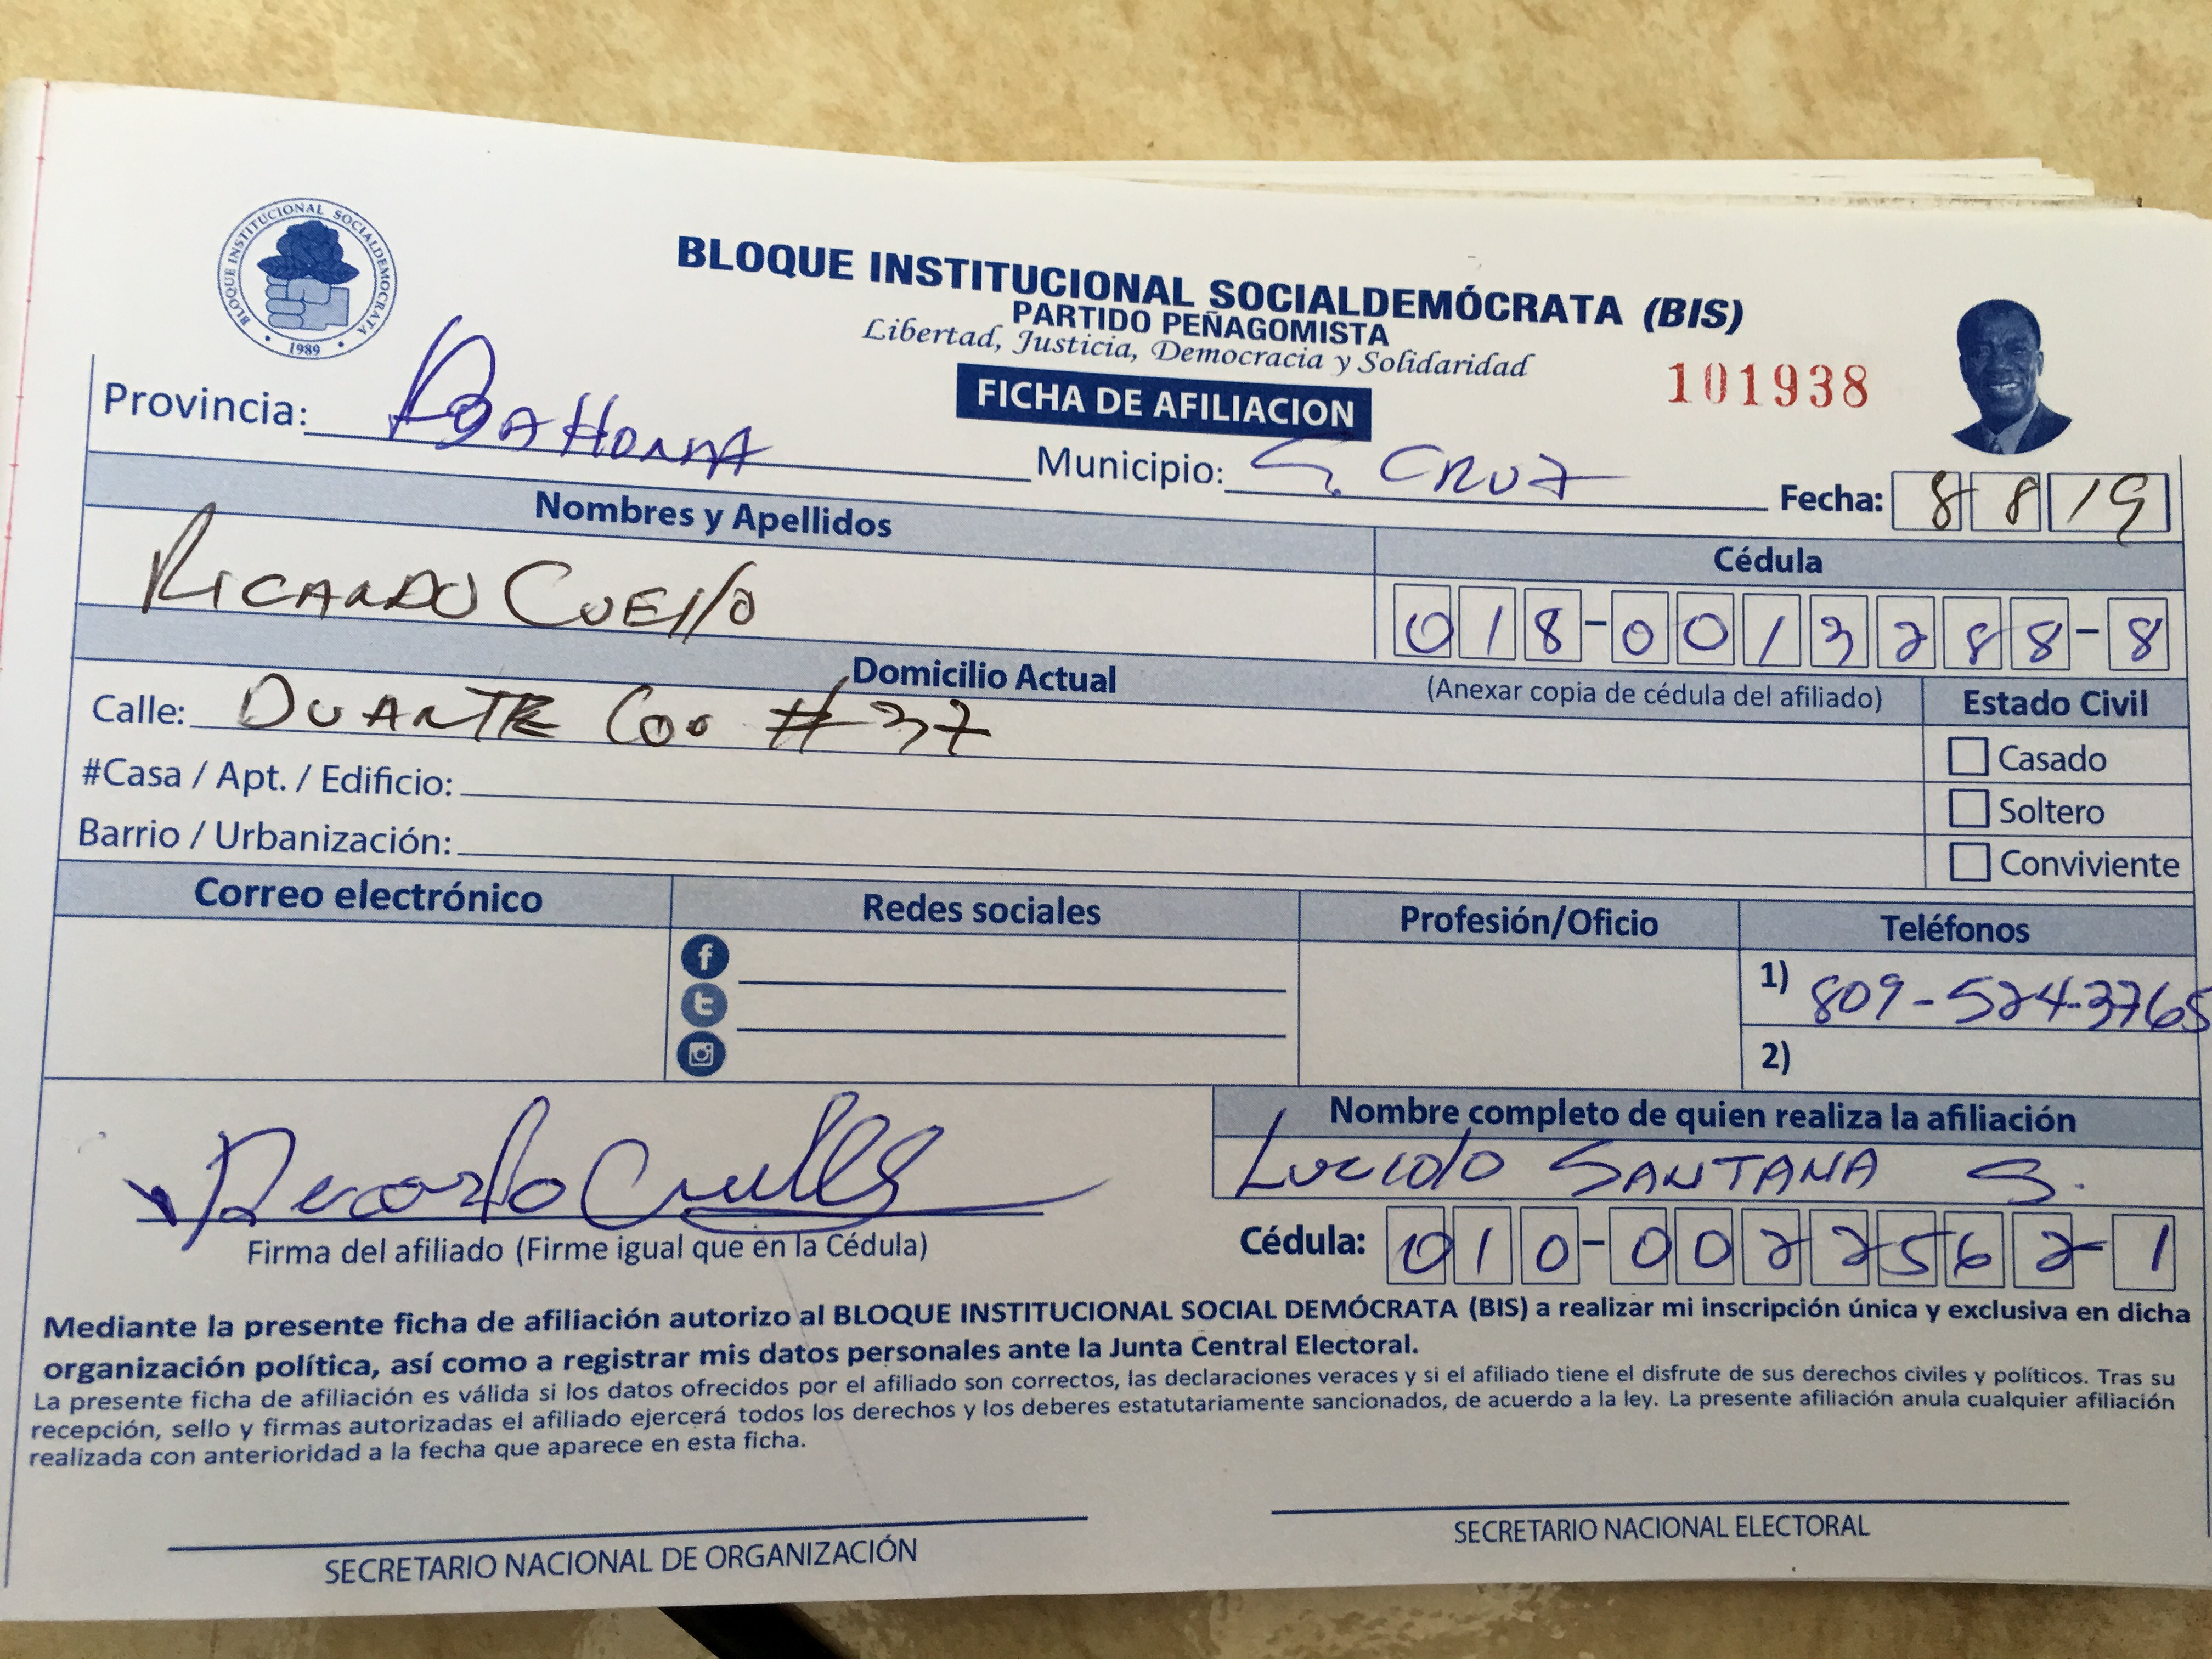 BLOQUE INSTITUCIONAL SOCIALDEMOCRATA
1989
BLOQUE INSTITUCIONAL SOCIALDEMÓCRATA (BIS)
PARTIDO PEÑAGOMISTA
Libertad, Justicia, Democracia y Solidaridad
FICHA DE AFILIACION
101938
Provincia: BAHONA
Municipio: S. CRUZ
Fecha: 8 8 19
Nombres y Apellidos
RICARDO CUEllO
Cédula
018-0013288-8
(Anexar copia de cédula del afiliado)
Domicilio Actual
Calle: DUARTE #37
#Casa / Apt. / Edificio:
Barrio / Urbanización:
Estado Civil
Casado
Soltero
Conviviente
Correo electrónico
Redes sociales
Profesión/Oficio
Teléfonos
1) 809-524-3765
2)
Ricardo Cuello
Firma del afiliado (Firme igual que en la Cédula)
Nombre completo de quien realiza la afiliación
SANTANA S.
Cédula: 010-0022562-1
Mediante la presente ficha de afiliación autorizo al BLOQUE INSTITUCIONAL SOCIAL DEMÓCRATA (BIS) a realizar mi inscripción única y exclusiva en dicha
organización política, así como a registrar mis datos personales ante la Junta Central Electoral.
La presente ficha de afiliación es válida si los datos ofrecidos por el afiliado son correctos, las declaraciones veraces y si el afiliado tiene el disfrute de sus derechos civiles y políticos. Tras su
recepción, sello y firmas autorizadas el afiliado ejercerá todos los derechos y los deberes estatutariamente sancionados, de acuerdo a la ley. La presente afiliación anula cualquier afiliación
realizada con anterioridad a la fecha que aparece en esta ficha.
SECRETARIO NACIONAL DE ORGANIZACIÓN
SECRETARIO NACIONAL ELECTORAL